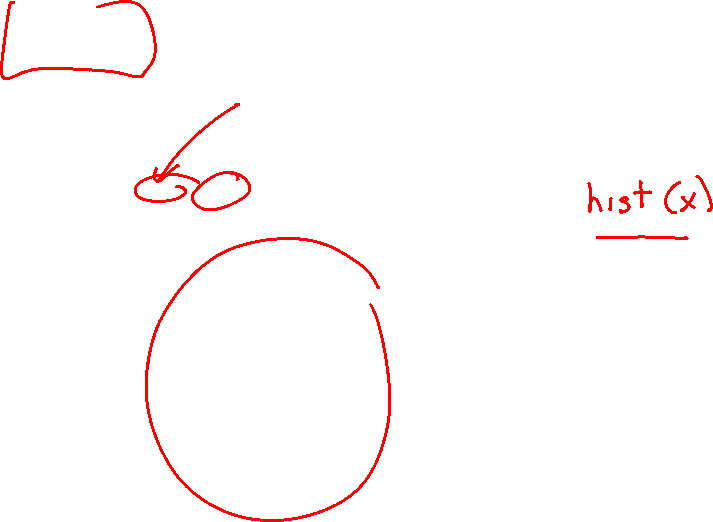 hist (x)